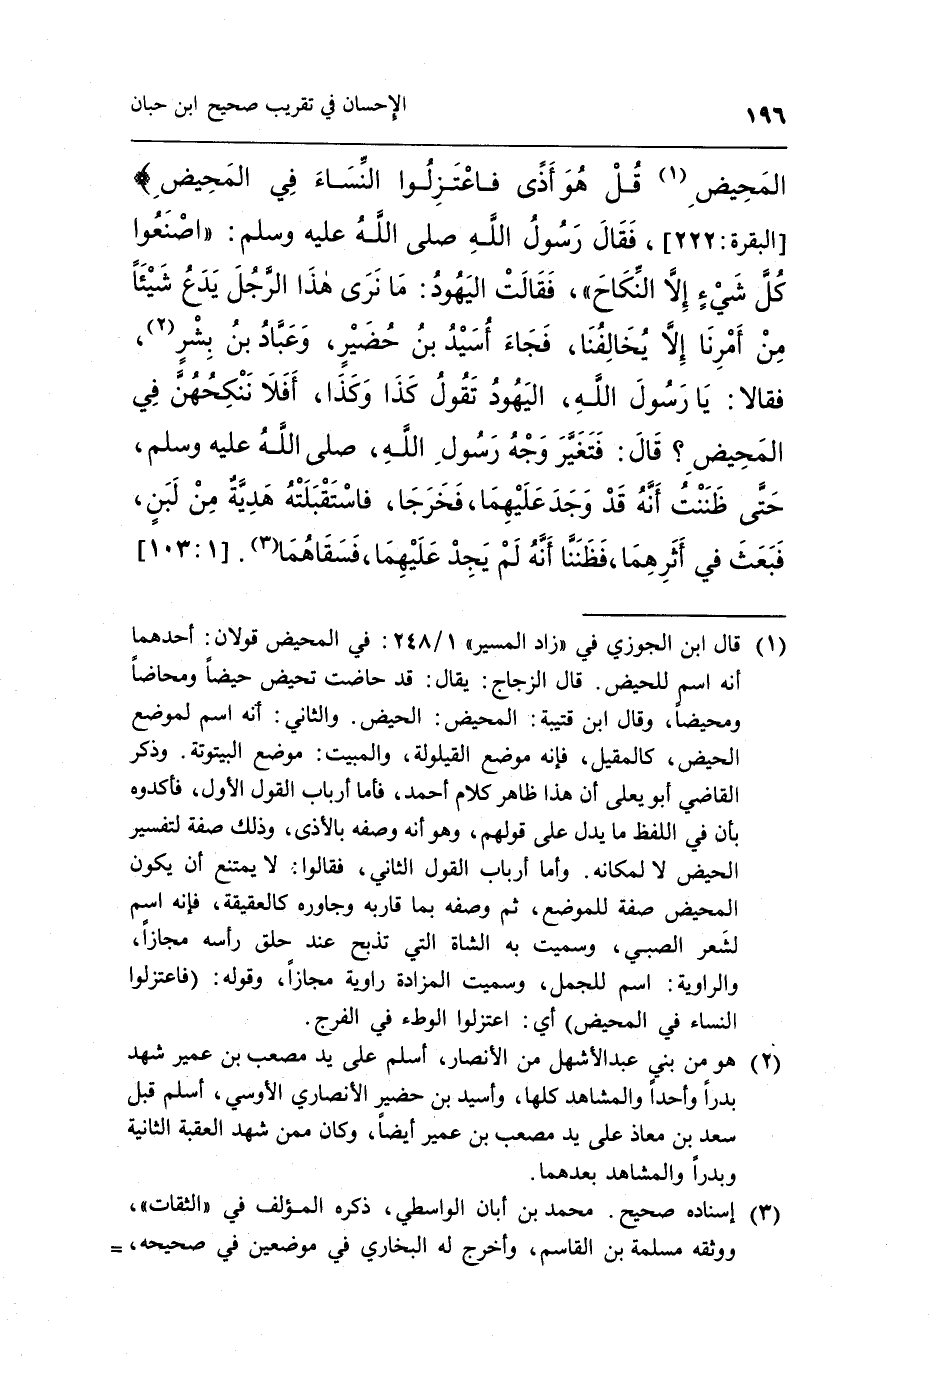 ١٩٦ الإحسان في تقريب صحيح ابن حبان
المَحِيضِ (١) قُلْ هُوَ أَذًى فَاعْتَزِلُوا النِّسَاءَ فِي المَحِيضِ﴾
[البقرة: ٢٢٢]، فَقَالَ رَسُولُ اللَّهِ صلى اللَّهُ عليه وسلم: «اصْنَعُوا
كُلَّ شَيْءٍ إِلَّا النِّكَاحَ»، فَقَالَتْ اليَهُودُ: مَا نَرَى هٰذَا الرَّجُلَ يَدَعُ شَيْئاً
مِنْ أَمْرِنَا إِلَّا يُخَالِفُنَا، فَجَاءَ أُسَيْدُ بنُ حُضَيْرٍ، وَعَبَّادُ بنُ بِشْرٍ(٢)،
فقالا: يَا رَسُولَ اللَّهِ، اليَهُودُ تَقُولُ كَذَا وَكَذَا، أَفَلَا نَنْكِحُهُنَّ فِي
المَحِيضِ؟ قَالَ: فَتَغَيَّرَ وَجْهُ رَسُولِ اللَّهِ، صلى اللَّهُ عليه وسلم،
حَتَّى ظَنَنْتُ أَنَّهُ قَدْ وَجَدَ عَلَيْهِمَا، فَخَرَجَا، فاسْتَقْبَلَتْهُ هَدِيَّةٌ مِنْ لَبَنٍ،
فَبَعَثَ في أَثَرِهِمَا، فَظَنَنَّا أَنَّهُ لَمْ يَجِدْ عَلَيْهِمَا، فَسَقَاهُمَا(٣). [١٠٣:١]
(١) قال ابن الجوزي في «زاد المسير» ٢٤٨/١: في المحيض قولان: أحدهما
أنه اسم للحيض. قال الزجاج: يقال: قد حاضت تحيض حيضاً ومحاضاً
ومحيضاً، وقال ابن قتيبة: المحيض: الحيض. والثاني: أنه اسم لموضع
الحيض، كالمقيل، فإنه موضع القيلولة، والمبيت: موضع البيتوتة. وذكر
القاضي أبو يعلى أن هذا ظاهر كلام أحمد، فأما أرباب القول الأول، فأكدوه
بأن في اللفظ ما يدل على قولهم، وهو أنه وصفه بالأذى، وذلك صفة لتفسير
الحيض لا لمكانه. وأما أرباب القول الثاني، فقالوا: لا يمتنع أن يكون
المحيض صفة للموضع، ثم وصفه بما قاربه وجاوره كالعقيقة، فإنه اسم
لشَعر الصبي، وسميت به الشاة التي تذبح عند حلق رأسه مجازاً،
والراوية: اسم للجمل، وسميت المزادة راوية مجازاً، وقوله: (فاعتزلوا
النساء في المحيض) أي: اعتزلوا الوطء في الفرج.
(٢) هو من بني عبدالأشهل من الأنصار، أسلم على يد مصعب بن عمير شهد
بدراً وأحداً والمشاهد كلها، وأسيد بن حضير الأنصاري الأوسي، أسلم قبل
سعد بن معاذ على يد مصعب بن عمير أيضاً، وكان ممن شهد العقبة الثانية
وبدراً والمشاهد بعدهما.
(٣) إسناده صحيح. محمد بن أبان الواسطي، ذكره المؤلف في «الثقات»،
ووثقه مسلمة بن القاسم، وأخرج له البخاري في موضعين في صحيحه، =